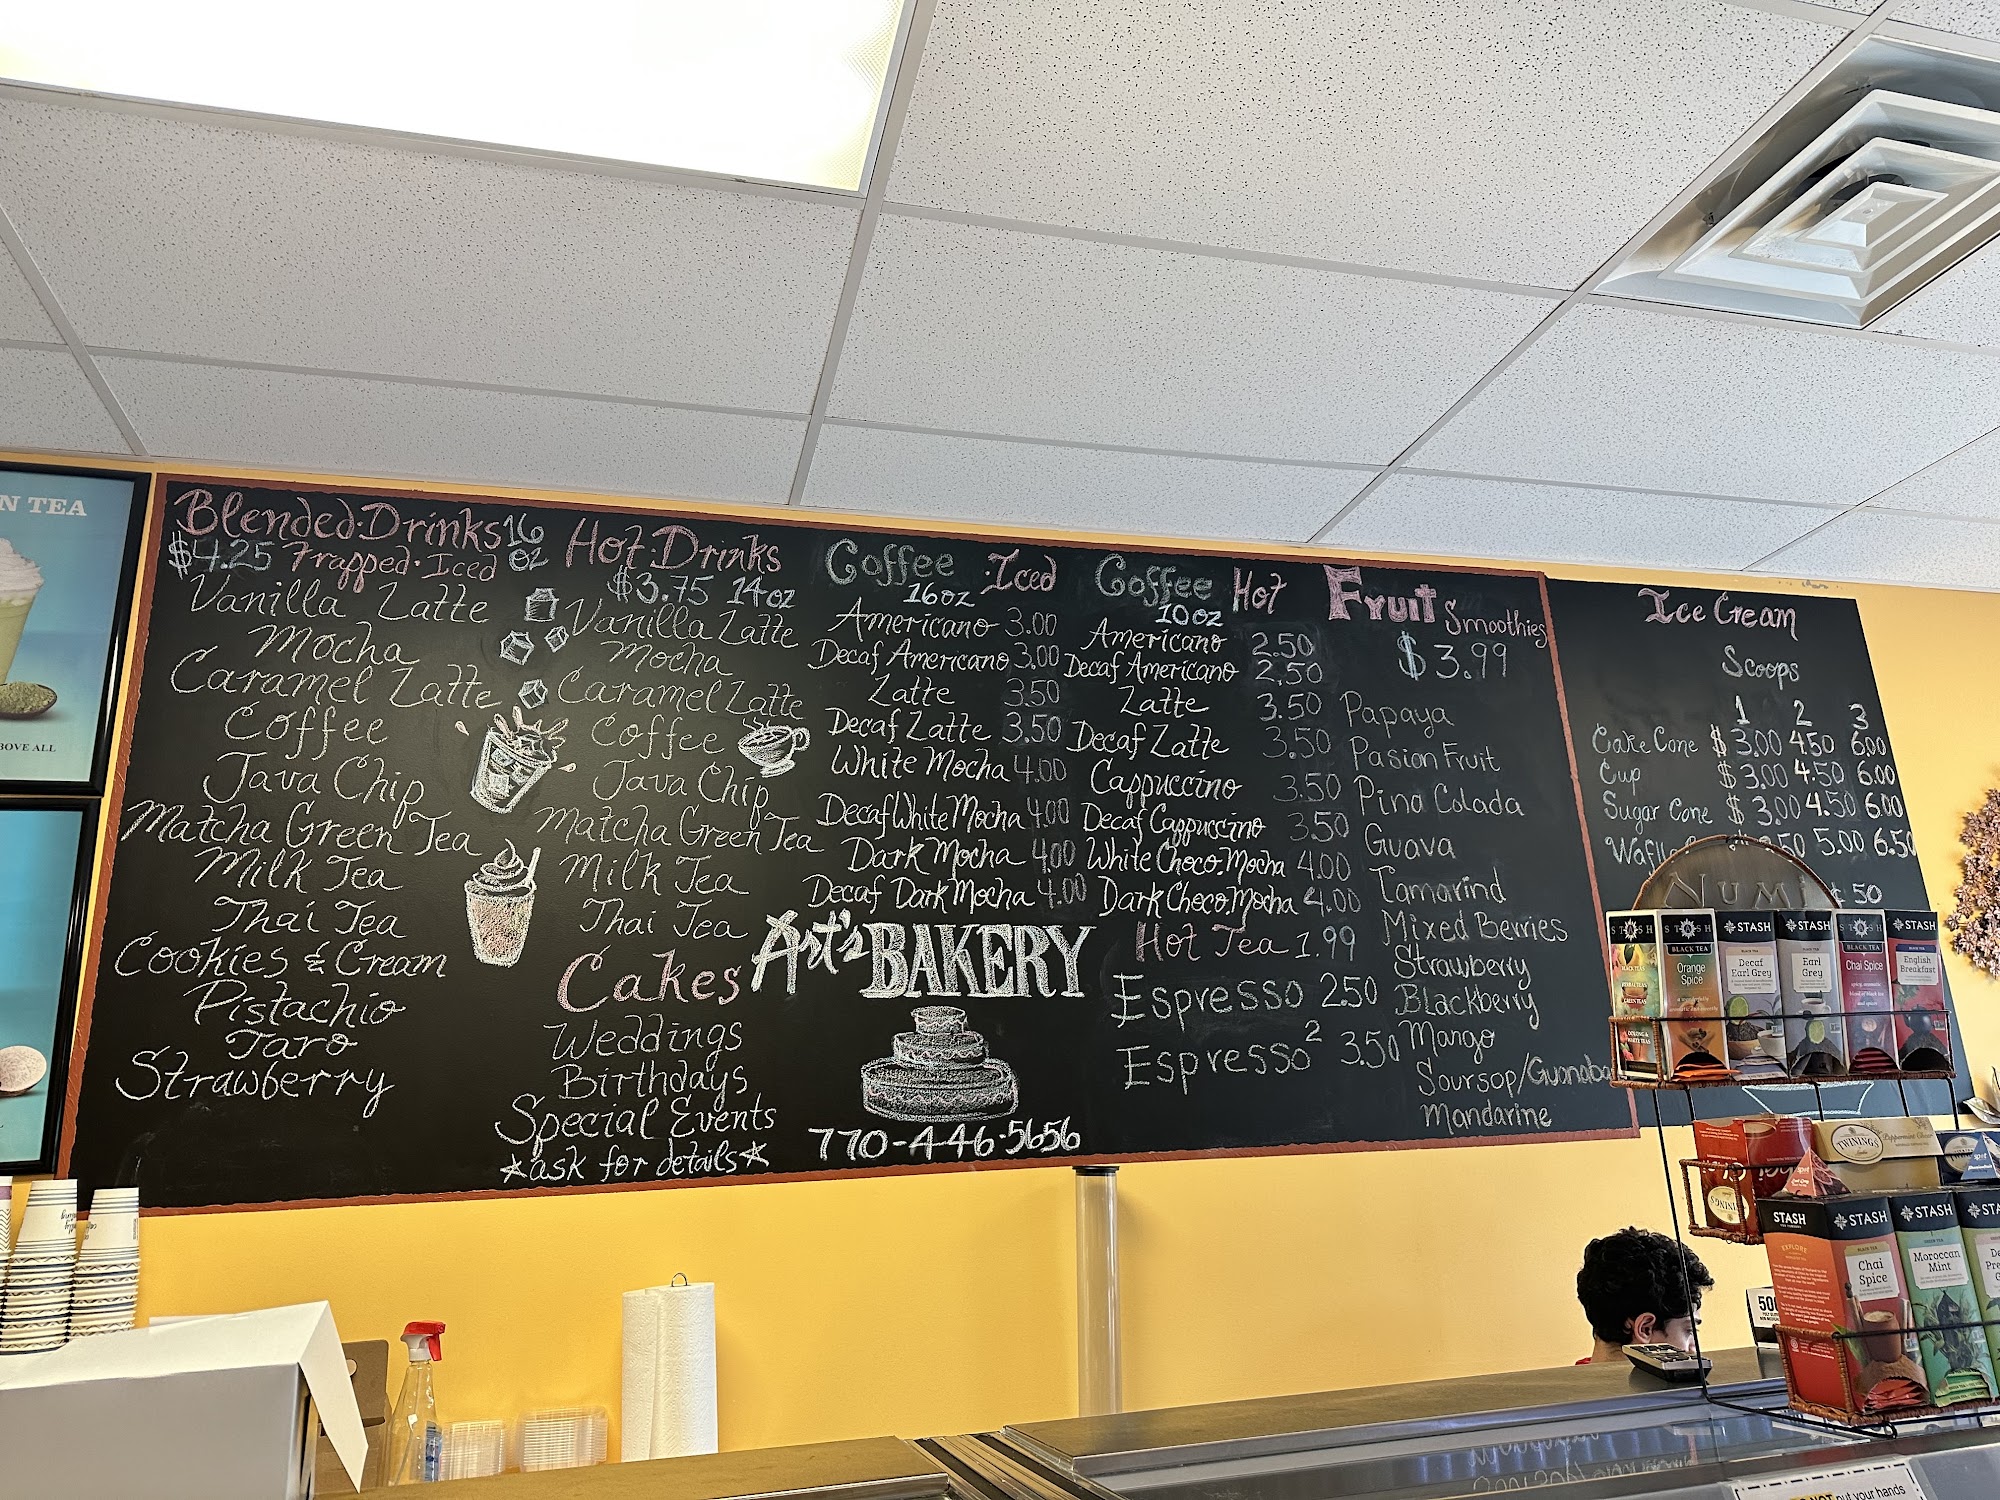 N TEA
BOVE ALL
Blended Drinks 16 oz
$4.25 Frapped · Iced
Vanilla Latte
Mocha
Caramel Latte
Coffee
Java Chip
Matcha Green Tea
Milk Tea
Thai Tea
Cookies & Cream
Pistachio
Taro
Strawberry
Hot Drinks
$3.75 14oz
Vanilla Latte
Mocha
Caramel Latte
Coffee
Java Chip
Matcha Green Tea
Milk Tea
Thai Tea
Cakes
Weddings
Birthdays
Special Events
*ask for details*
Coffee Iced
16oz
Americano 3.00
Decaf Americano 3.00
Latte 3.50
Decaf Latte 3.50
White Mocha 4.00
Decaf White Mocha 4.00
Dark Mocha 4.00
Decaf Dark Mocha 4.00
Art's BAKERY
770-446-5656
Coffee Hot
10oz
Americano 2.50
Decaf Americano 2.50
Latte 3.50
Decaf Latte 3.50
Cappuccino 3.50
Decaf Cappuccino 3.50
White Choco. Mocha 4.00
Dark Choco. Mocha 4.00
Hot Tea 1.99
Espresso 2.50
Espresso² 3.50
Fruit Smoothies
$3.99
Papaya
Pasion Fruit
Pina Colada
Guava
Tamarind
Mixed Berries
Strawberry
Blackberry
Mango
Soursop/Guanaba
Mandarine
Ice Cream
Scoops
1 2 3
Cake Cone $3.00 4.50 6.00
Cup $3.00 4.50 6.00
Sugar Cone $3.00 4.50 6.00
50 5.00 6.50
50
NUMI
STASH
BLACK TEA
Orange Spice
STASH
Decaf Earl Grey
STASH
Earl Grey
STASH
BLACK TEA
Chai Spice
STASH
English Breakfast
TWININGS
STASH
EXPLORE
STASH
Chai Spice
STASH
Moroccan Mint
STA
50
NOT put your hands